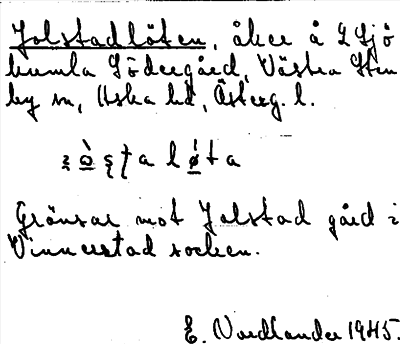 Jolstadlöten, åker å L Sjö
kumla Södergård, Västra Sten
by sn, Aska hd, Österg. l.
Gränsar mot Jolstad gård i
Vinnerstad socken.
E. Nordlander 1945.